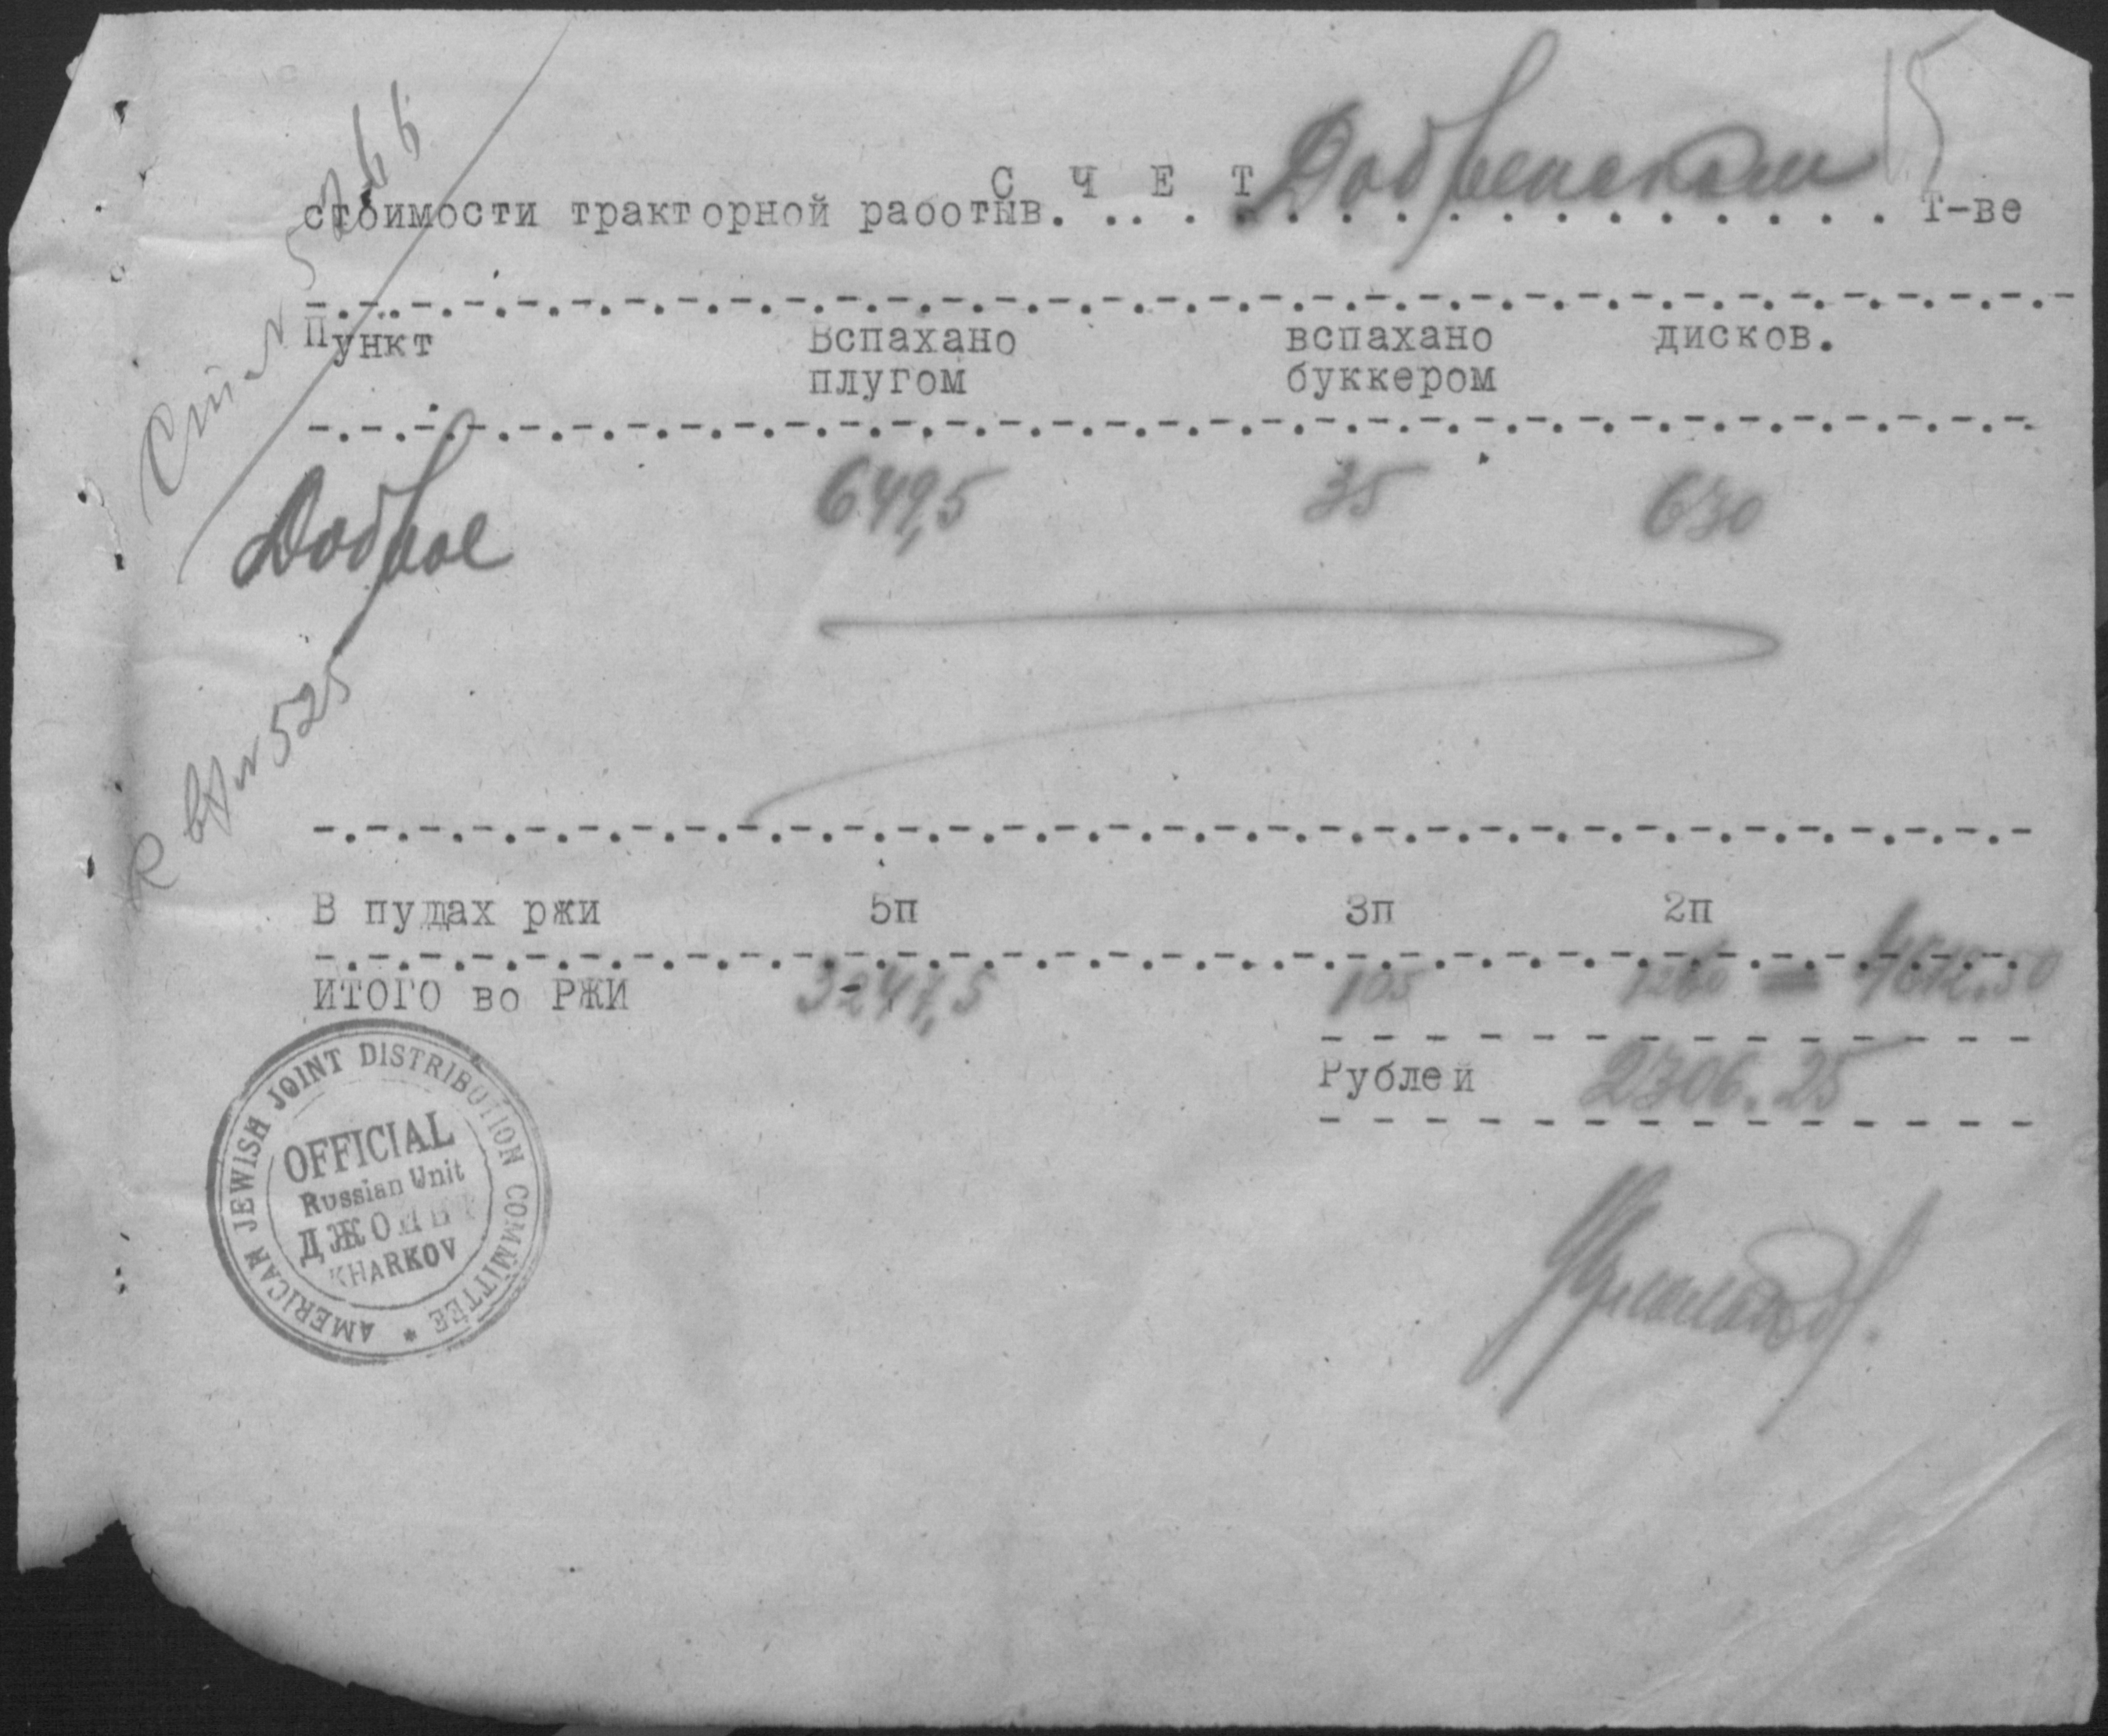 15
С Ч Е Т
стоимости тракторной работыв. . . . . Добренском . . . . Т-ве
Пункт Вспахано вспахано дисков.
плугом буккером
Доброе 649,5 35 630
N 525
В пудах ржи 5п 3п 2п
ИТОГО во РЖИ 3247,5 105 1260 = 4612.50
Рублей 2306.25
AMERICAN JEWISH JOINT DISTRIBUTION COMMITTEE *
OFFICIAL
Russian Unit
ДЖОЙНТ
KHARKOV